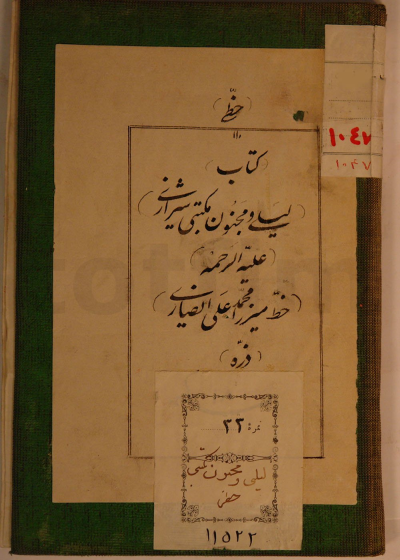 (خطّی)
۱۰۴۷
۱۰۴۷
(کتاب)
(لیلی و مجنون مکتبی شیرازی)
(علیه الرحمه)
(خطّ میرزا محمد علی انصاری)
(ذرّه)
نمره: ۳۲
لیلی و مجنون مکتبی
۱۱۵۲۲